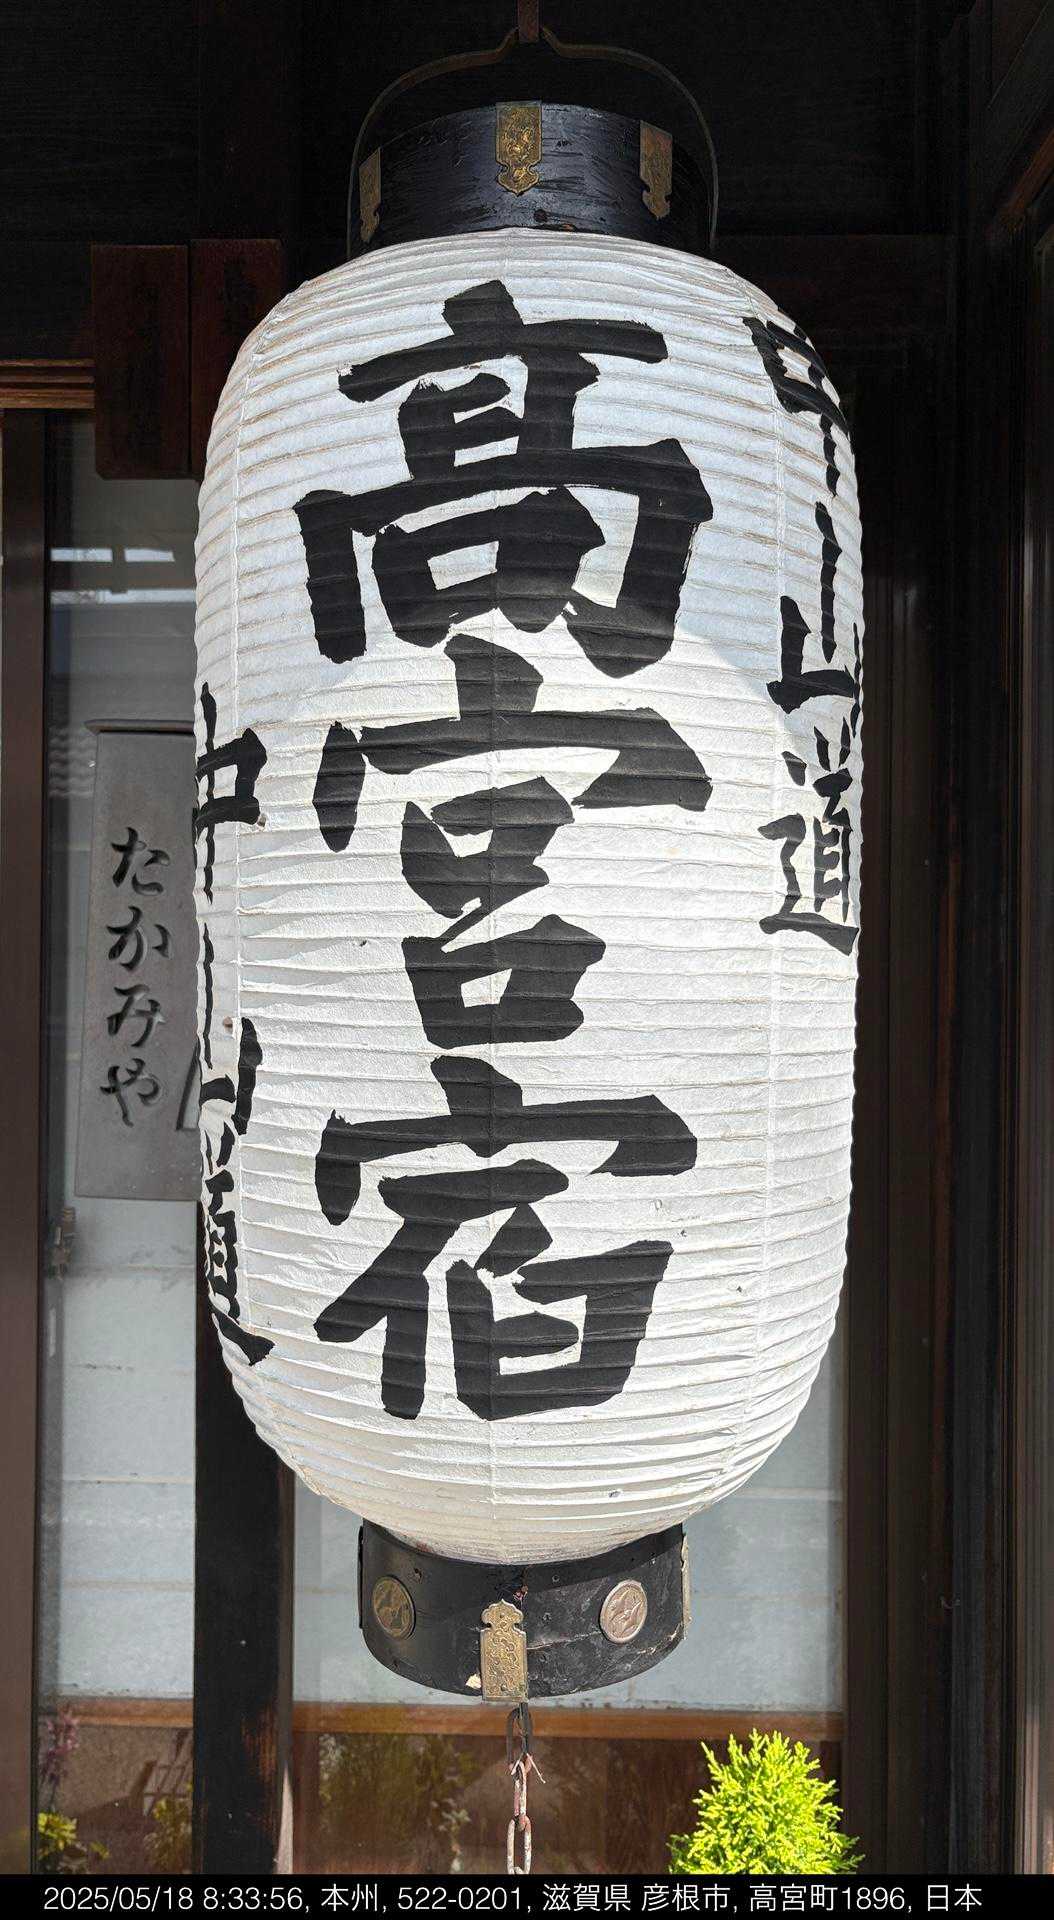 高宮宿
中山道
中山道
たかみや
2025/05/18 8:33:56, 本州, 522-0201, 滋賀県 彦根市, 高宮町1896, 日本